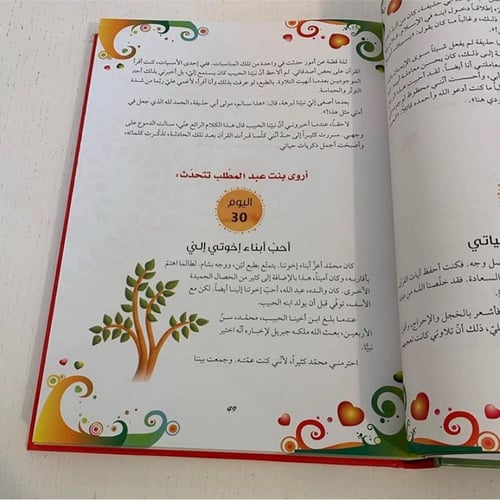 ثمّة قصة عن أمور حدثت في واحدة من تلك المناسبات. ففي إحدى الأمسيات، كنت أقرأ
القرآن على بعض أصدقائي. لم ألاحظ أنّ نبيّنا الحبيب كان يستمع إليّ، بل أخبرني بذلك أحد
الموجودين بعدما أنهيت التلاوة. بالطبع، لو عرفت بذلك أو أنّنا أقرأ، لأعمي علي ربما من شدة
التوتّر والحماسة.
بعدما أصغى إليّ نبيّنا لبرهة، قال: «هذا سالم، مولى أبي حذيفة، الحمد لله الذي جعل في
أمتي مثل هذا!».
لاحقاً، عندما أخبروني أنّ نبيّنا الحبيب قال هذا الكلام الرائع عنّي، سالت الدموع على
وجهي. سررت كثيراً إلى حدّ أنّني كلّما قرأت القرآن بعد تلك الحادثة، تذكّرت كلماته،
وأصبحت أجمل ذكريات حياتي.
أروى بنت عبد المطّلب تتحدّث:
اليوم
30
أحبّ أبناء إخوتي إليّ
كان محمّد أعزّ أبناء إخوتنا. يتمتّع بطبع ليّن، ووجه بشّام. لطالما اهتمّ
بأقاربه، وكان أميناً. هذا بالإضافة إلى كثير من الخصال الحميدة
الأخرى. كان والده، عبد الله، أحبّ إخوتنا إلينا أيضاً. لكن مع
الأسف، توفّي قبل أن يولد ابنه الحبيب.
عندما بلغ ابن أخينا الحبيب، محمّد، سنّ
الأربعين، بعث الله ملكه جبريل لإخباره أنّه اختير
نبيّاً.
احترمني محمّد كثيراً، لأنّني كنت عمّته. وجمعت بيننا
٤٩